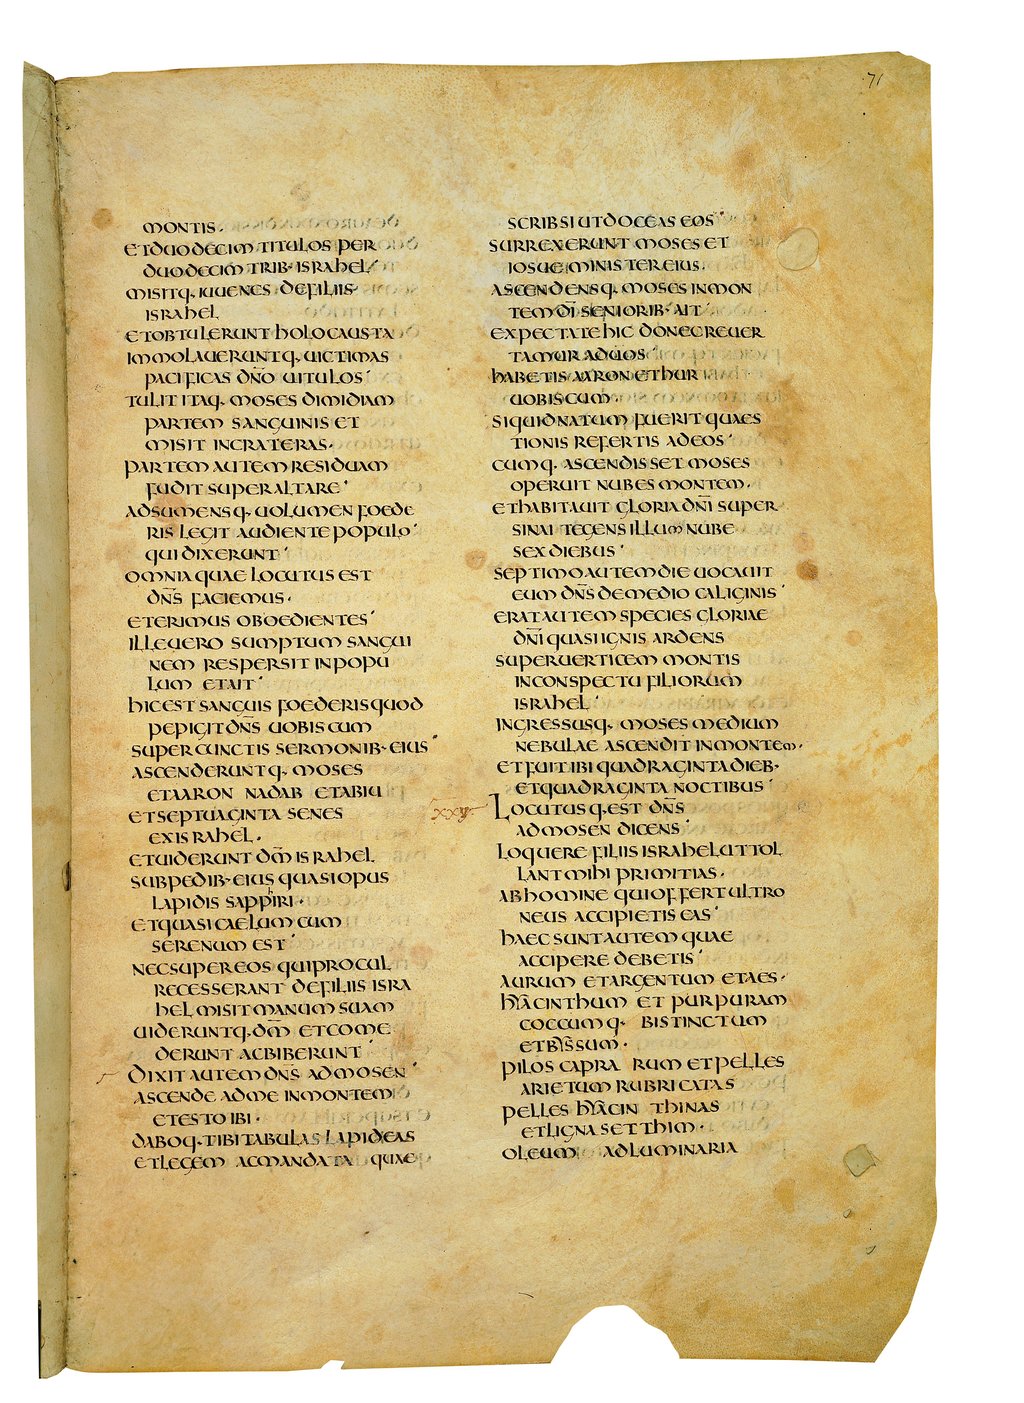 71
MONTIS·
ET DUODECIM TITULOS PER
DUODECIM TRIB· ISRAHEL
MISITQ· IUUENES DE FILIIS·
ISRAHEL
ET OBTULERUNT HOLOCAUSTA
IMMOLAUERUNTQ· UICTIMAS
PACIFICAS DN̄O UITULOS
TULIT ITAQ· MOSES DIMIDIAM
PARTEM SANGUINIS ET
MISIT IN CRATERAS·
PARTEM AUTEM RESIDUAM
FUDIT SUPER ALTARE
ADSUMENSQ· UOLUMEN FOEDE
RIS LEGIT AUDIENTE POPULO
QUI DIXERUNT
OMNIA QUAE LOCUTUS EST
DN̄S FACIEMUS·
ET ERIMUS OBOEDIENTES
ILLE UERO SUMPTUM SANGUI
NEM RESPERSIT IN POPU
LUM ET AIT
HIC EST SANGUIS FOEDERIS QUOD
PEPIGIT DN̄S UOBISCUM
SUPER CUNCTIS SERMONIB· EIUS
ASCENDERUNTQ· MOSES
ET AARON NADAB ET ABIU
ET SEPTUAGINTA SENES
EX ISRAHEL·
ET UIDERUNT DM̄ ISRAHEL
SUB PEDIB· EIUS QUASI OPUS
LAPIDIS SAPPhIRI·
ET QUASI CAELUM CUM
SERENUM EST
NEC SUPER EOS QUI PROCUL
RECESSERANT DE FILIIS ISRA
HEL MISIT MANUM SUAM
UIDERUNTQ· DM̄ ET COME
DERUNT AC BIBERUNT
DIXIT AUTEM DN̄S AD MOSEN
ASCENDE AD ME IN MONTEM
ET ESTO IBI·
DABOQ· TIBI TABULAS LAPIDEAS
ET LEGEM AC MANDATA QUAE
SCRIBSI UT DOCEAS EOS
SURREXERUNT MOSES ET
IOSUE MINISTER EIUS·
ASCENDENSQ· MOSES IN MON
TEM DĪ SENIORIB· AIT
EXPECTATE HIC DONEC REUER
TAMUR AD UOS
HABETIS AARON ET HUR
UOBISCUM·
SI QUID NATUM FUERIT QUAES
TIONIS REFERTIS AD EOS
CUMQ· ASCENDISSET MOSES
OPERUIT NUBES MONTEM·
ET HABITAUIT GLORIA DN̄I SUPER
SINAI TEGENS ILLUM NUBE
SEX DIEBUS
SEPTIMO AUTEM DIE UOCAUIT
EUM DN̄S DE MEDIO CALIGINIS
ERAT AUTEM SPECIES GLORIAE
DN̄I QUASI IGNIS ARDENS
SUPER UERTICEM MONTIS
IN CONSPECTU FILIORUM
ISRAHEL
INGRESSUSQ· MOSES MEDIUM
NEBULAE ASCENDIT IN MONTEM·
ET FUIT IBI QUADRAGINTA DIEB·
ET QUADRAGINTA NOCTIBUS
LOCUTUSQ· EST DN̄S
AD MOSEN DICENS
LOQUERE FILIIS ISRAHEL UT TOL
LANT MIHI PRIMITIAS·
AB HOMINE QUI OFFERT ULTRO
NEUS ACCIPIETIS EAS
HAEC SUNT AUTEM QUAE
ACCIPERE DEBETIS
AURUM ET ARGENTUM ET AES·
HYACINTHUM ET PURPURAM
COCCUMQ· BIS TINCTUM
ET BYSSUM·
PILOS CAPRARUM ET PELLES
ARIETUM RUBRICATAS
PELLES HYACINTHINAS
ET LIGNA SETTHIM·
OLEUM AD LUMINARIA